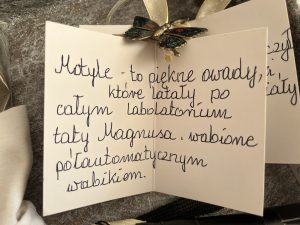 Motyle - to piękne owady,
które latały po
całym labolatorium
taty Magnusa. wabione
półautomatycznym
wabikiem.